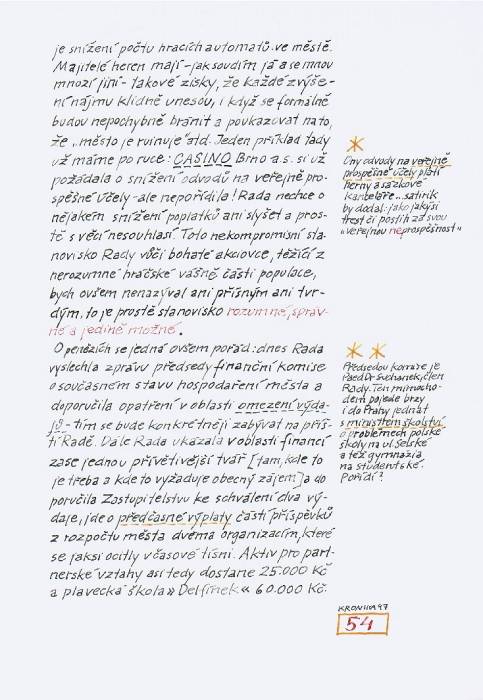 je snížení počtu hracích automatů ve městě.
Majitelé heren mají – jak soudím já a se mnou
mnozí jiní – takové zisky, že každé zvýše-
ní nájmu klidně unesou, i když se formálně
budou nepochybně bránit a poukazovat na to,
že „město je ruinuje" atd. Jeden příklad tady
už máme po ruce: CASINO Brno a.s. si už
požádala o snížení odvodů na veřejně pro-
spěšné účely – ale nepořídila! Rada nechce o
nějakém snížení poplatků ani slyšet a pros-
tě s věcí nesouhlasí. Toto nekompromisní sta-
novisko Rady vůči bohaté akciovce, těžící z
nerozumné hráčské vášně části populace,
bych ovšem nenazýval ani přísným ani tvr-
dým, to je prostě stanovisko rozumné, správ-
né a jedině možné.
O penězích se jedná ovšem pořád: dnes Rada
vyslechla zprávu předsedy finanční komise
o současném stavu hospodaření města a
doporučila opatření v oblasti omezení výda-
jů – tím se bude konkrétněji zabývat na příš-
tí Radě. Dále Rada ukázala v oblasti financí
zase jednou přívětivější tvář [tam, kde to
je třeba a kde to vyžaduje obecný zájem] a do
poručila Zastupitelstvu ke schválení dva vý-
daje, jde o předčasné výplaty části příspěvků
z rozpočtu města dvěma organizacím, které
se jaksi ocitly v časové tísni. Aktiv pro part-
nerské vztahy asi tedy dostane 25.000 Kč
a plavecká škola » Delfínek « 60.000 Kč.
*
Ony odvody na veřejně
prospěšné účely platí
herny a sázkové
kanceláře... satirik
by dodal: jako jakýsi
trest či postih za svou
"veřejnou neprospěšnost"
* *
Předsedou komise je
PaedDr Suchánek, člen
Rady. Ten mimocho-
dem pojede brzy
i do Prahy jednat
s ministrem školství
o problémech polské
školy na ul. Selské
a též gymnázia
na studentské.
Pořídí?
KRONIKA 97
54